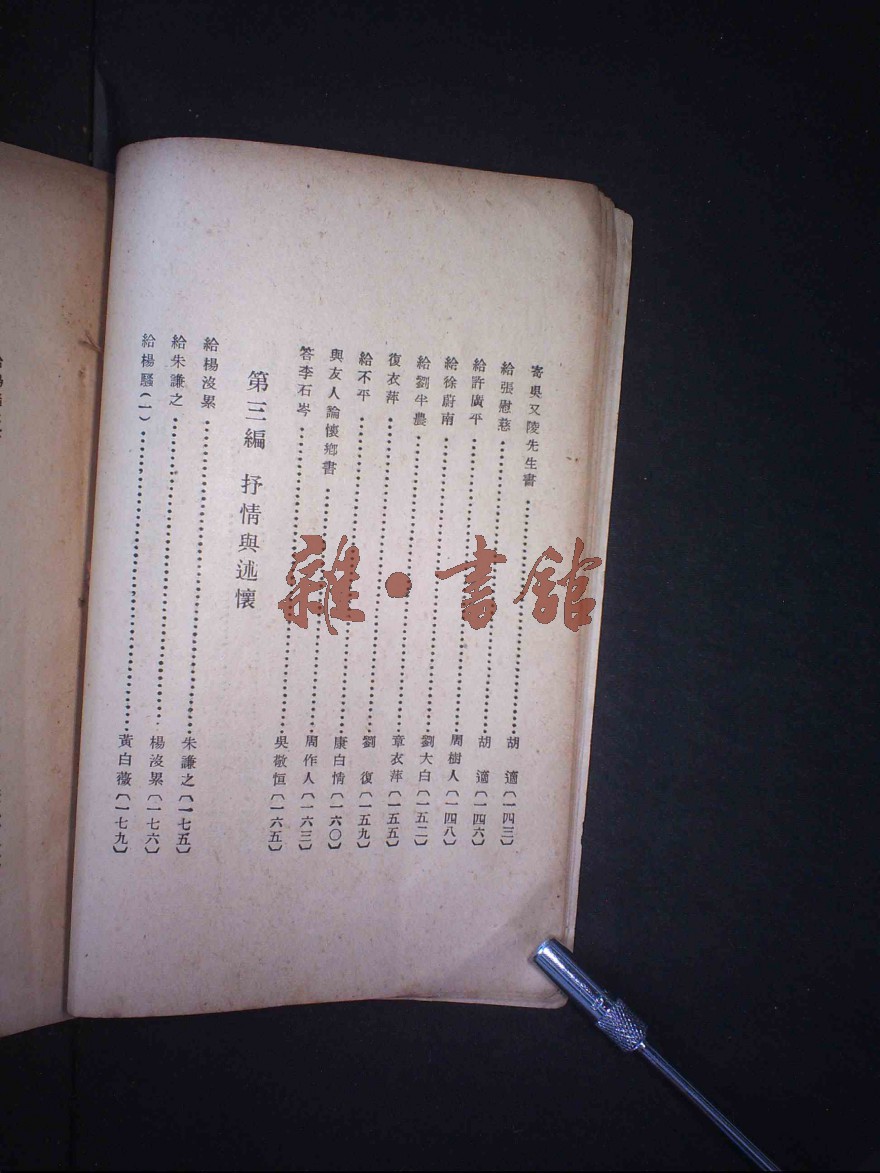 寄吳又陵先生書……胡　適〔一四三〕
給張慰慈……胡　適〔一四六〕
給許廣平……周樹人〔一四八〕
給徐蔚南……劉大白〔一五二〕
給劉半農……章衣萍〔一五五〕
復衣萍……劉　復〔一五九〕
給不平……康白情〔一六〇〕
與友人論懷鄉書……周作人〔一六三〕
答李石岑……吳敬恒〔一六五〕
第三編　抒情與述懷
給楊沒累……朱謙之〔一七五〕
給朱謙之……楊沒累〔一七六〕
給楊騷(一)……黃白薇〔一七九〕
雜·書館